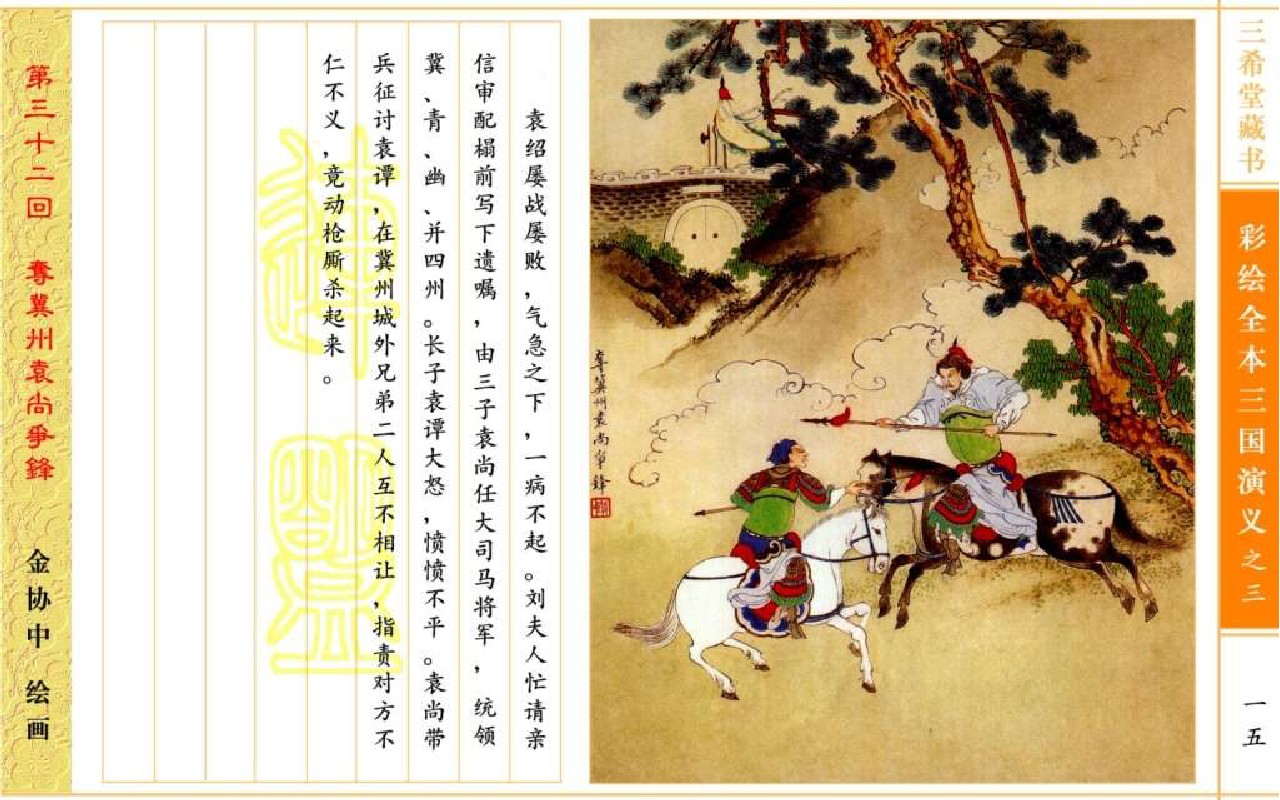 三希堂藏书
彩绘全本三国演义之三
一五
奪冀州袁尚爭鋒
袁绍屡战屡败，气急之下，一病不起。刘夫人忙请亲
信审配榻前写下遗嘱，由三子袁尚任大司马将军，统领
冀、青、幽、并四州。长子袁谭大怒，愤愤不平。袁尚带
兵征讨袁谭，在冀州城外兄弟二人互不相让，指责对方不
仁不义，竟动枪厮杀起来。
第三十二回 奪冀州袁尚爭鋒
金协中 绘画